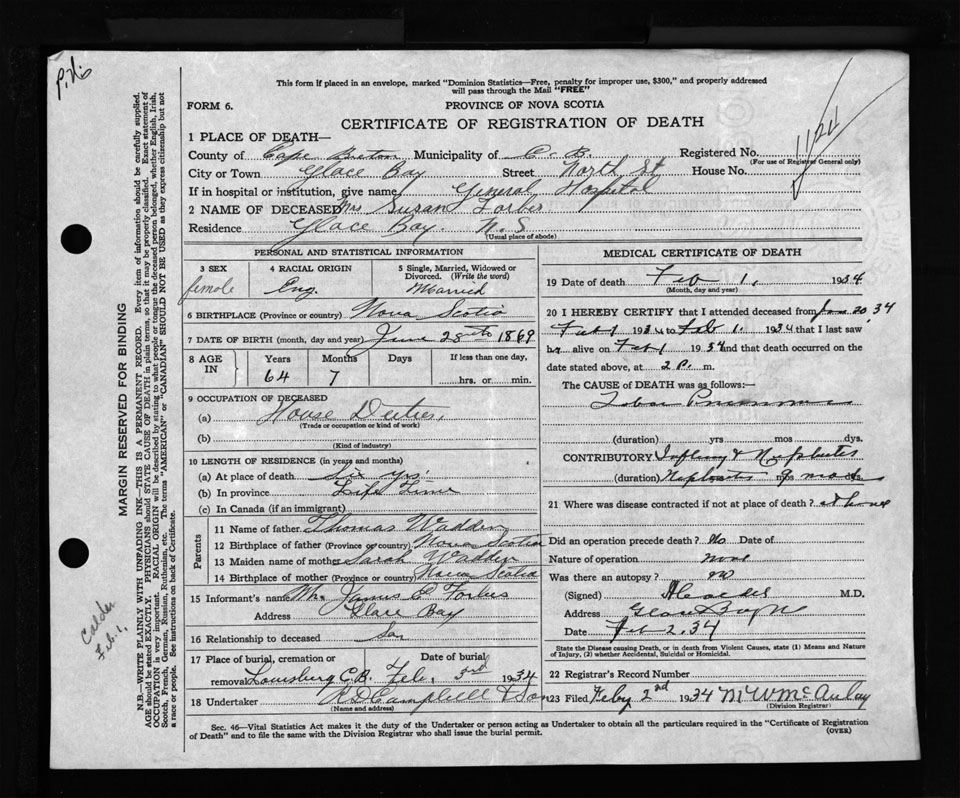 P. No
This form if placed in an envelope, marked "Dominion Statistics—Free, penalty for improper use, $300," and properly addressed
will pass through the Mail "FREE"
FORM 6.
PROVINCE OF NOVA SCOTIA
CERTIFICATE OF REGISTRATION OF DEATH
1124
1 PLACE OF DEATH—
County of Cape Breton Municipality of C. B. Registered No.
(For use of Registrar General only)
City or Town Glace Bay Street North St House No.
If in hospital or institution, give name General Hospital
2 NAME OF DECEASED Mrs Susan Forbes
Residence Glace Bay. N. S
(Usual place of abode)
PERSONAL AND STATISTICAL INFORMATION
3 SEX female
4 RACIAL ORIGIN Eng.
5 Single, Married, Widowed or
Divorced. (Write the word)
Married
6 BIRTHPLACE (Province or country) Nova Scotia
7 DATE OF BIRTH (month, day and year) June 28th 1869
8 AGE IN Years Months Days If less than one day,
64 7 hrs. or min.
9 OCCUPATION OF DECEASED
(a) House Duties,
(Trade or occupation or kind of work)
(b)
(Kind of industry)
10 LENGTH OF RESIDENCE (in years and months)
(a) At place of death Six yrs
(b) In province Life time
(c) In Canada (if an immigrant)
Parents
11 Name of father Thomas Wadden
12 Birthplace of father (Province or country) Nova Scotia
13 Maiden name of mother Sarah Wadden
14 Birthplace of mother (Province or country) Nova Scotia
15 Informant's name Mr. James Forbes
Address Glace Bay
16 Relationship to deceased Son
17 Place of burial, cremation or Date of burial
removal Louisburg C.B. Feb. 3rd 1934
18 Undertaker R D Campbell & Son
(Name and address)
MEDICAL CERTIFICATE OF DEATH
19 Date of death Feb 1, 1934
(Month, day and year)
20 I HEREBY CERTIFY that I attended deceased from Jan 20, 34
Feb 1 1934 to Feb 1. 1934 that I last saw
her alive on Feb 1 1934 and that death occurred on
date stated above, at 2 P. m.
The CAUSE of DEATH was as follows:—
Lobar Pneumonia
(duration) yrs mos dys.
CONTRIBUTORY & Nephritis
(duration) Nephritis mos dys.
21 Where was disease contracted if not at place of death? at home
Did an operation precede death? No Date of
Nature of operation none
Was there an autopsy? no
(Signed) M.D.
Address Glace Bay
Date Feb 2, 34
State the Disease causing Death, or in death from Violent Causes, state (1) Means and Nature
of Injury, (2) whether Accidental, Suicidal or Homicidal.
22 Registrar's Record Number
23 Filed Feby 2nd 1934 M W McAulay
(Division Registrar)
Sec. 46—Vital Statistics Act makes it the duty of the Undertaker or person acting as Undertaker to obtain all the particulars required in the "Certificate of Registration
of Death" and to file the same with the Division Registrar who shall issue the burial permit.
(OVER)
MARGIN RESERVED FOR BINDING
N.B.—WRITE PLAINLY WITH UNFADING INK—THIS IS A PERMANENT RECORD. Every item of information should be carefully supplied.
AGE should be stated EXACTLY. PHYSICIANS should STATE CAUSE OF DEATH in plain terms, so that it may be properly classified. Exact statement of
OCCUPATION is very important. RACIAL ORIGIN will be described by stating to what people or tongue the deceased person belonged, whether English, Irish,
Scotch, French, German, Russian, Ruthenian, etc. The terms "AMERICAN" or "CANADIAN" SHOULD NOT BE USED as they express citizenship but not
a race or people. See instructions on back of Certificate.
Calder
Feb. 1,